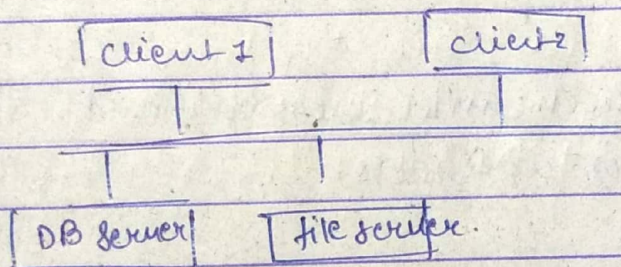 client 1
client 2
DB server
file server.